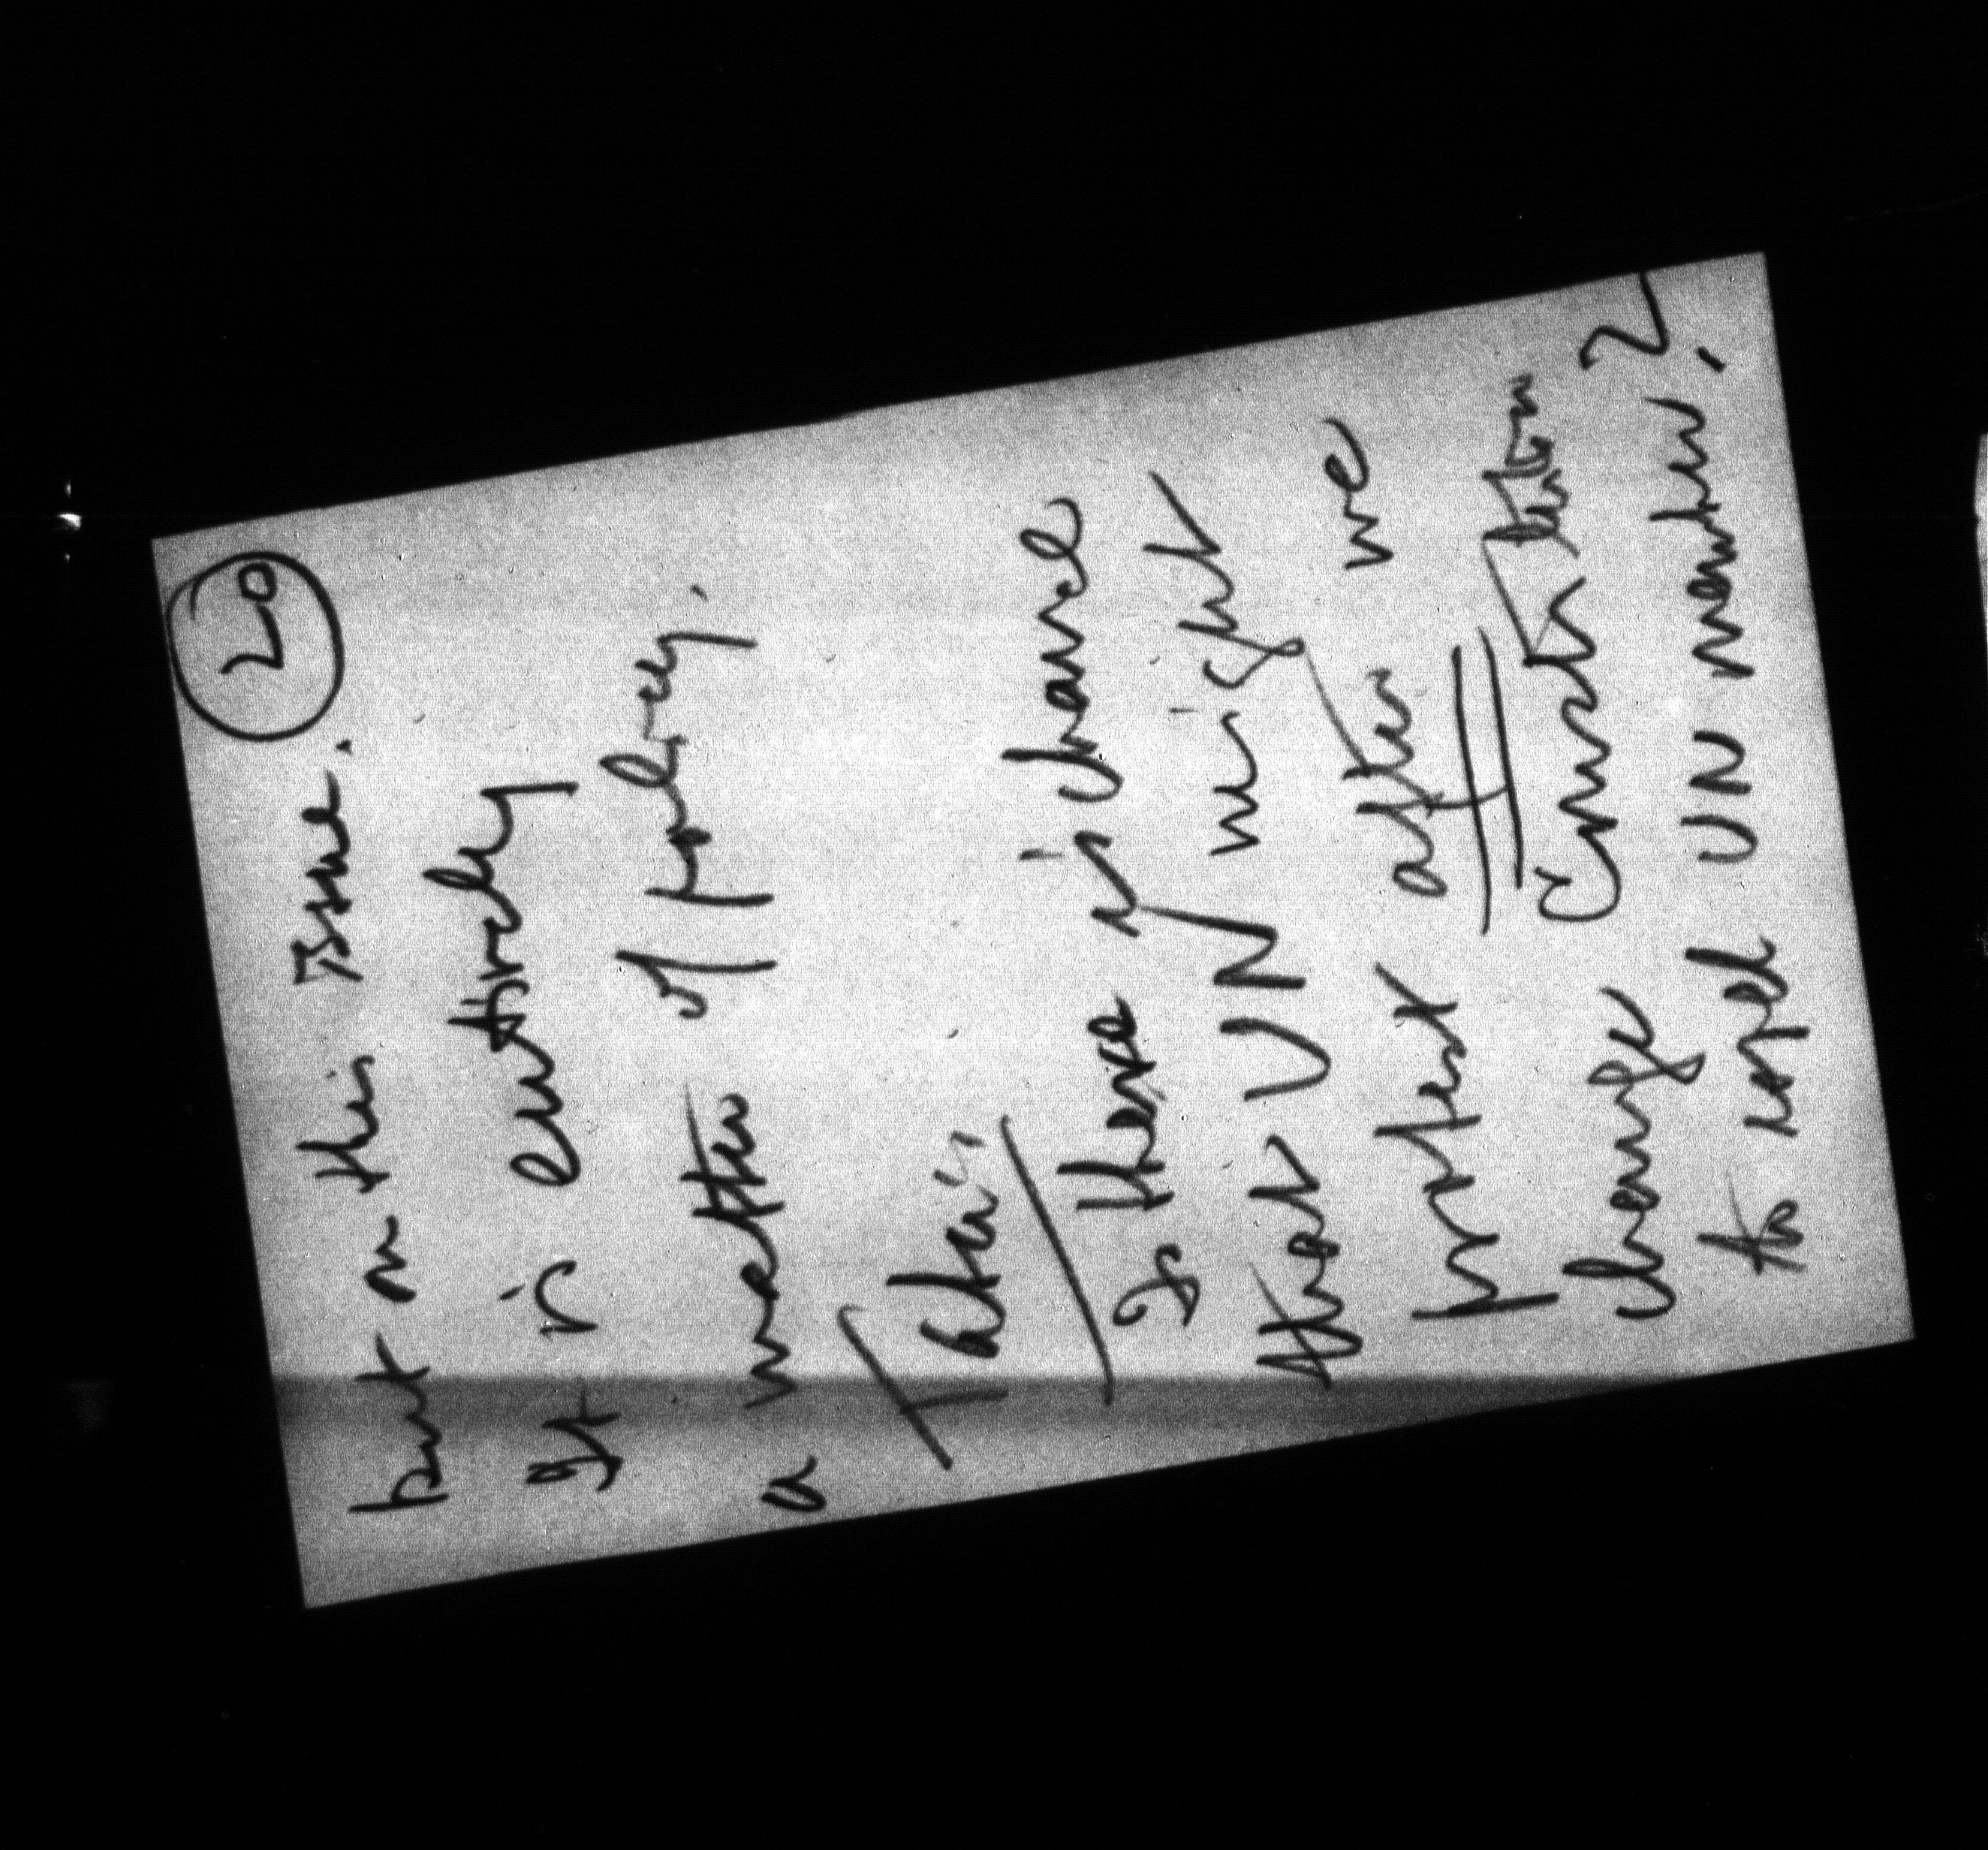 20
put on this issue.
It is entirely
a matter of policy.
Is there is chance
that UN might
protest after we
change Constitution
to expel UN member?